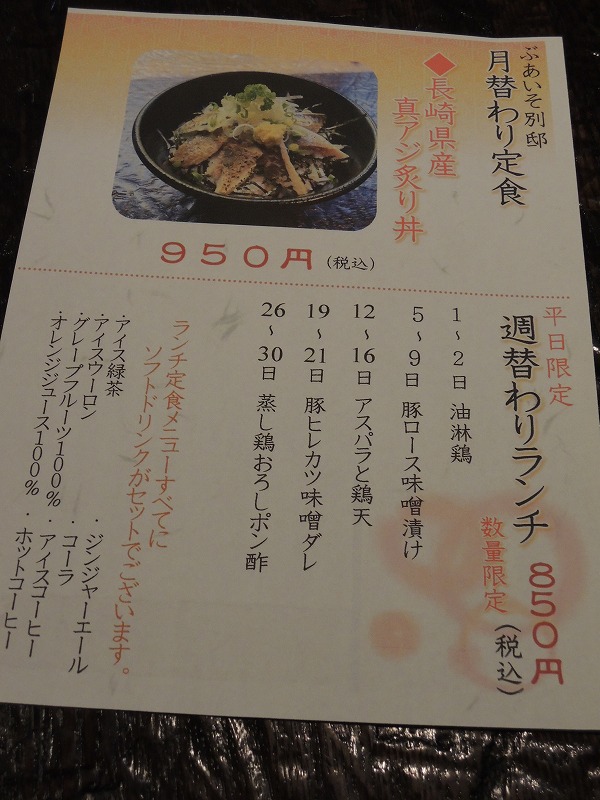 ぶあいそ別邸
月替わり定食
◆長崎県産
真アジ炙り丼
950円(税込)
平日限定
週替わりランチ
850円
数量限定
(税込)
1~2日 油淋鶏
5~9日 豚ロース味噌漬け
12~16日 アスパラと鶏天
19~21日 豚ヒレカツ味噌ダレ
26~30日 蒸し鶏おろしポン酢
ランチ定食メニューすべてに
ソフトドリンクがセットでございます。
・アイス緑茶
・アイスウーロン
・グレープフルーツ100%
・オレンジジュース100%
・ジンジャーエール
・コーラ
・アイスコーヒー
・ホットコーヒー